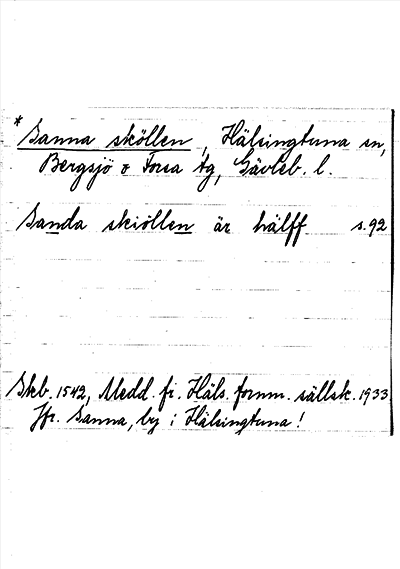 * Sanna sköllen, Hälsingtuna sn,
Bergsjö o Forsa tg, Gävleb. l.
Sanda skiöllen är hälff s. 92
Skb. 1542, Medd. fr. Häls. fornm. sällsk. 1933
Jfr. Sanna, by i Hälsingtuna!